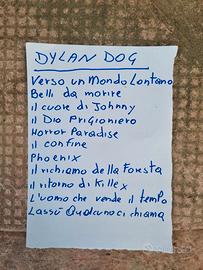 DYLAN DOG
Verso un Mondo Lontano
Belli da morire
il cuore di Johnny
il Dio Prigioniero
Horror Paradise
il confine
Phoenix
il richiamo della Foresta
il ritorno di Killex
L'uomo che vende il tempo
Lassù Qualcuno ci chiama